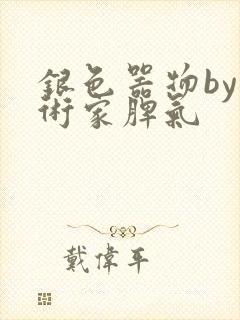 銀色器物by
術家脾氣
戴偉平